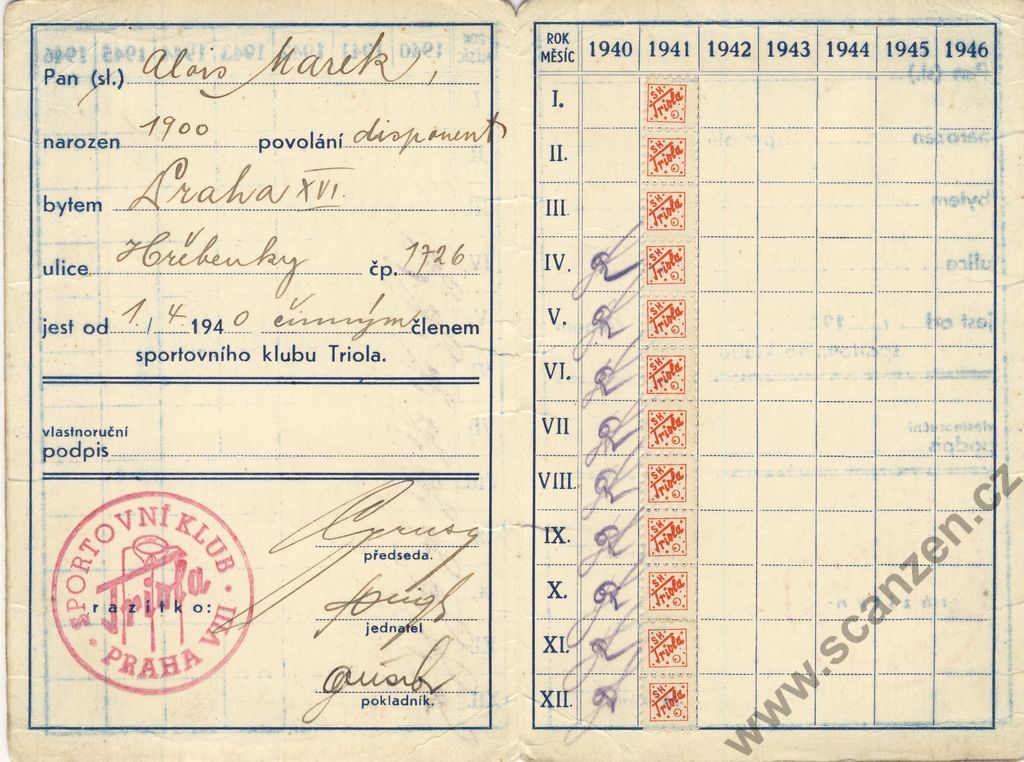 Pan (sl.) Alois Marek,
narozen 1900 povolání disponent
bytem Praha XVI.
ulice Hřebenky čp. 1726
jest od 1./4 1940 činným členem
sportovního klubu Triola.
vlastnoruční
podpis
SPORTOVNÍ KLUB
Triola
razítko:
PRAHA VIII
předseda.
jednatel
pokladník.
ROK 1940 1941 1942 1943 1944 1945 1946
MĚSÍC
I. SK Triola
II. SK Triola
III SK Triola
IV. SK Triola
V. SK Triola
VI. SK Triola
VII SK Triola
VIII. SK Triola
IX. SK Triola
X. SK Triola
XI. SK Triola
XII. SK Triola
www.scanzen.cz